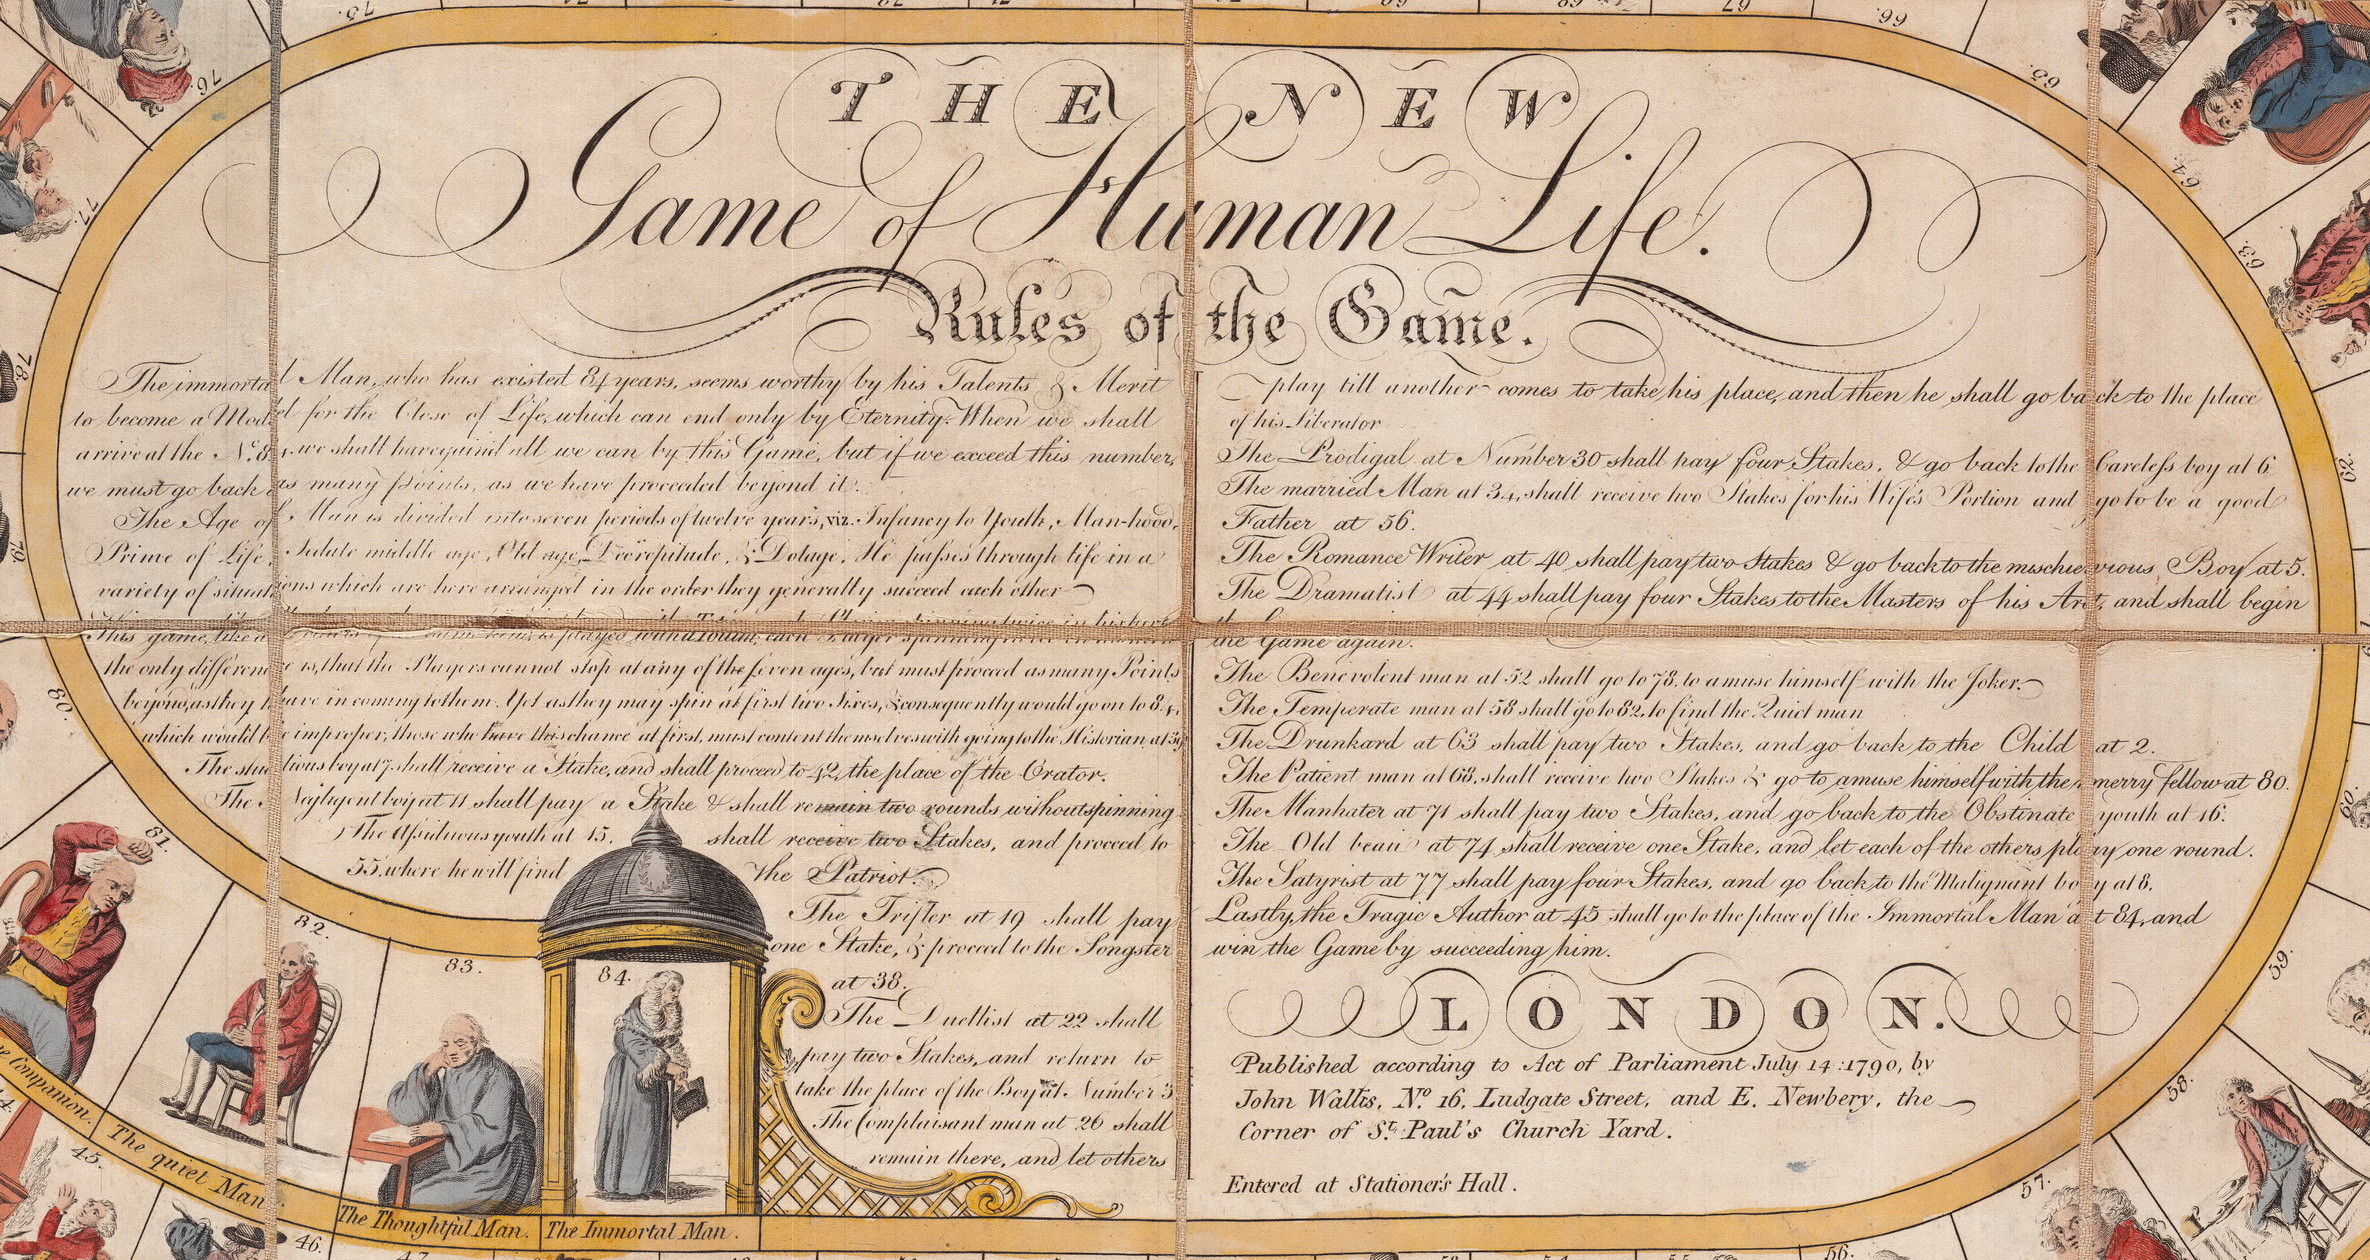 THE NEW
Game of Human Life.
Rules of the Game.
The immortal Man, who has existed 84 years, seems worthy by his Talents & Merit
to become a Model for the Close of Life, which can end only by Eternity. When we shall
arrive at the No. 84, we shall have gaind all we can by this Game, but if we exceed this number,
we must go back as many Points, as we have proceeded beyond it.
The Age of Man is divided into seven periods of twelve years, viz. Infancy to Youth, Man-hood,
Prime of Life, Sedate middle age, Old age, Decrepitude, & Dotage. He passes through life in a
variety of situations which are here arranged in the order they generally succeed each other
This game, like all others of the same kind, is played with a Totum, each Player spinning twice in
the only difference is, that the Players cannot stop at any of the seven ages, but must proceed as many Points
beyond, as they have in coming to them. Yet as they may spin at first two Sixes, & consequently would go on to 84,
which would be improper, those who have this chance at first, must content themselves with going to the Historian, at 39
The studious boy at 7 shall receive a Stake, and shall proceed to 42, the place of the Orator.
The Negligent boy at 11 shall pay a Stake & shall remain two rounds without spinning
The Assiduous youth at 15. shall receive two Stakes, and proceed to
55, where he will find the Patriot.
The Trifler at 19 shall pay
one Stake, & proceed to the Songster
at 38.
The Duellist at 22 shall
pay two Stakes, and return to
take the place of the Boy at Number 3
The Complaisant man at 26 shall
remain there, and let others
play till another comes to take his place, and then he shall go back to the place
of his Liberator
The Prodigal at Number 30 shall pay four Stakes, & go back to the Careless boy at 6
The married Man at 34, shall receive two Stakes for his Wife's Portion and go to be a good
Father at 56.
The Romance Writer at 40 shall pay two Stakes & go back to the mischievious Boy at 5.
The Dramatist at 44 shall pay four Stakes to the Masters of his Art, and shall begin
the Game again.
The Benevolent man at 52 shall go to 78, to amuse himself with the Joker.
The Temperate man at 58 shall go to 82, to find the Quiet man
The Drunkard at 63 shall pay two Stakes, and go back to the Child at 2.
The Patient man at 68, shall receive two Stakes & go to amuse himself with the merry fellow at 80.
The Manhater at 71 shall pay two Stakes, and go back to the Obstinate youth at 16.
The Old beau at 74 shall receive one Stake, and let each of the others play one round.
The Satyrist at 77 shall pay four Stakes, and go back to the Malignant boy at 8.
Lastly, the Tragic Author at 45 shall go to the place of the Immortal Man at 84, and
win the Game by succeeding him.
LONDON.
Published according to Act of Parliament July 14: 1790, by
John Wallis, No. 16, Ludgate Street, and E. Newbery, the
Corner of St. Paul's Church Yard.
Entered at Stationer's Hall.
66.
65.
64.
63.
62.
60.
59.
58.
57.
56.
75.
76.
77.
78.
79.
80.
81.
82.
83.
84.
Companion.
The quiet Man.
The Thoughtful Man.
The Immortal Man.
45.
46.
47.